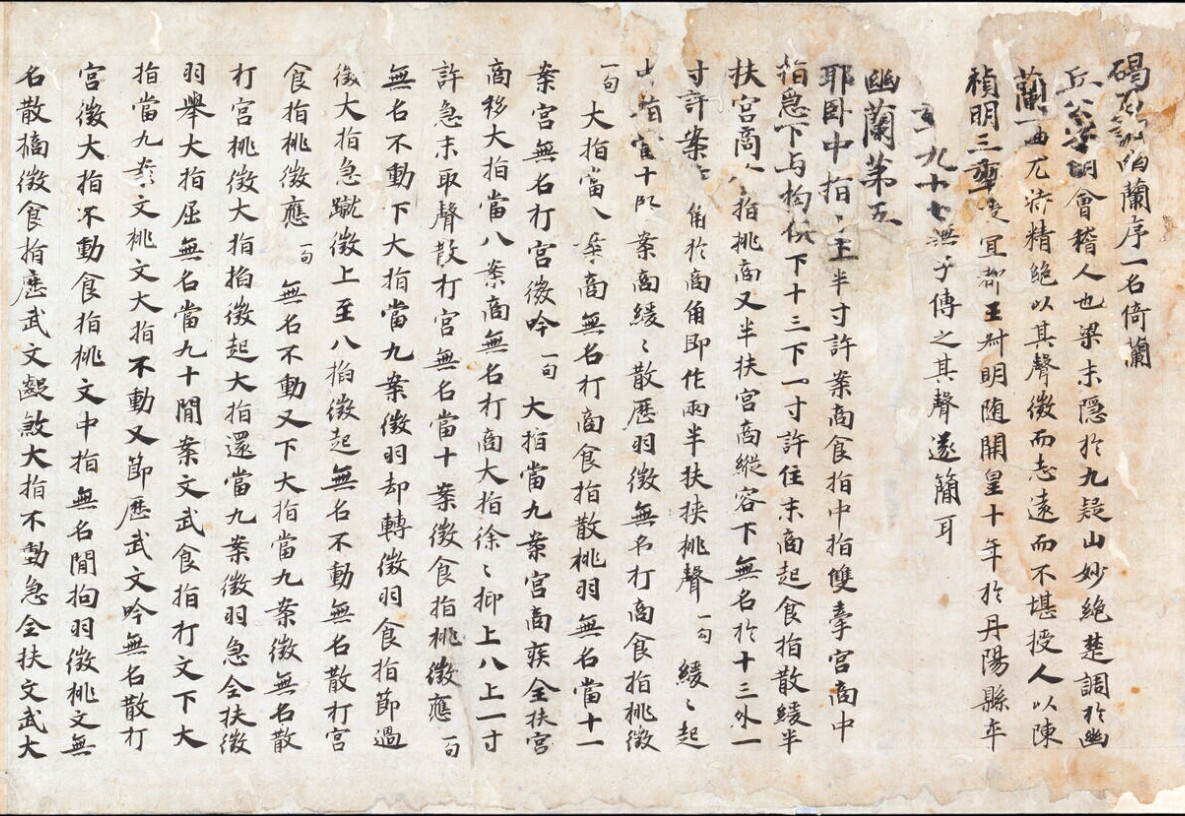 碣石調幽蘭序一名倚蘭
丘公字明會稽人也梁末隱於九疑山妙絕楚調於幽
蘭一曲尤特精絕以其聲微而志遠而不堪授人以陳
禎明三年授宜都王叔明隨開皇十年於丹陽縣卒
年九十七無子傳之其聲遂簡耳
幽蘭第五
耶臥中指〻半寸許案商食指中指雙牽宮商中
指急下与拘俱下十三下一寸許住末商起食指散緩半
扶宮商食指挑商又半扶宮商縱容下無名於十三外一
寸許案商角於商角即作兩半扶挾挑聲一句緩〻起
無名不當十三案商緩〻散歷羽徵無名打商食指挑徵
一句大指當八案商無名打商食指散挑羽無名當十一
案宮無名打宮徵吟一句大指當九案宮商疾全扶宮
商移大指當八案商無名打商大指徐〻抑上八上一寸
許急末取聲散打宮無名當十案徵食指挑徵應一句
無名不動下大指當九案徵羽却轉徵羽食指節過
徵大指急蹴徵上至八掐徵起無名不動無名散打宮
食指挑徵應一句無名不動又下大指當九案徵無名散
打宮挑徵大指掐徵起大指還當九案徵羽急全扶徵
羽舉大指屈無名當九十間案文武食指打文下大
指當九案文挑文大指不動又節歷武文吟無名散打
宮徵大指不動食指挑文中指無名間拘羽徵挑文無
名散擿徵食指歷武文齪煞大指不動急全扶文武大